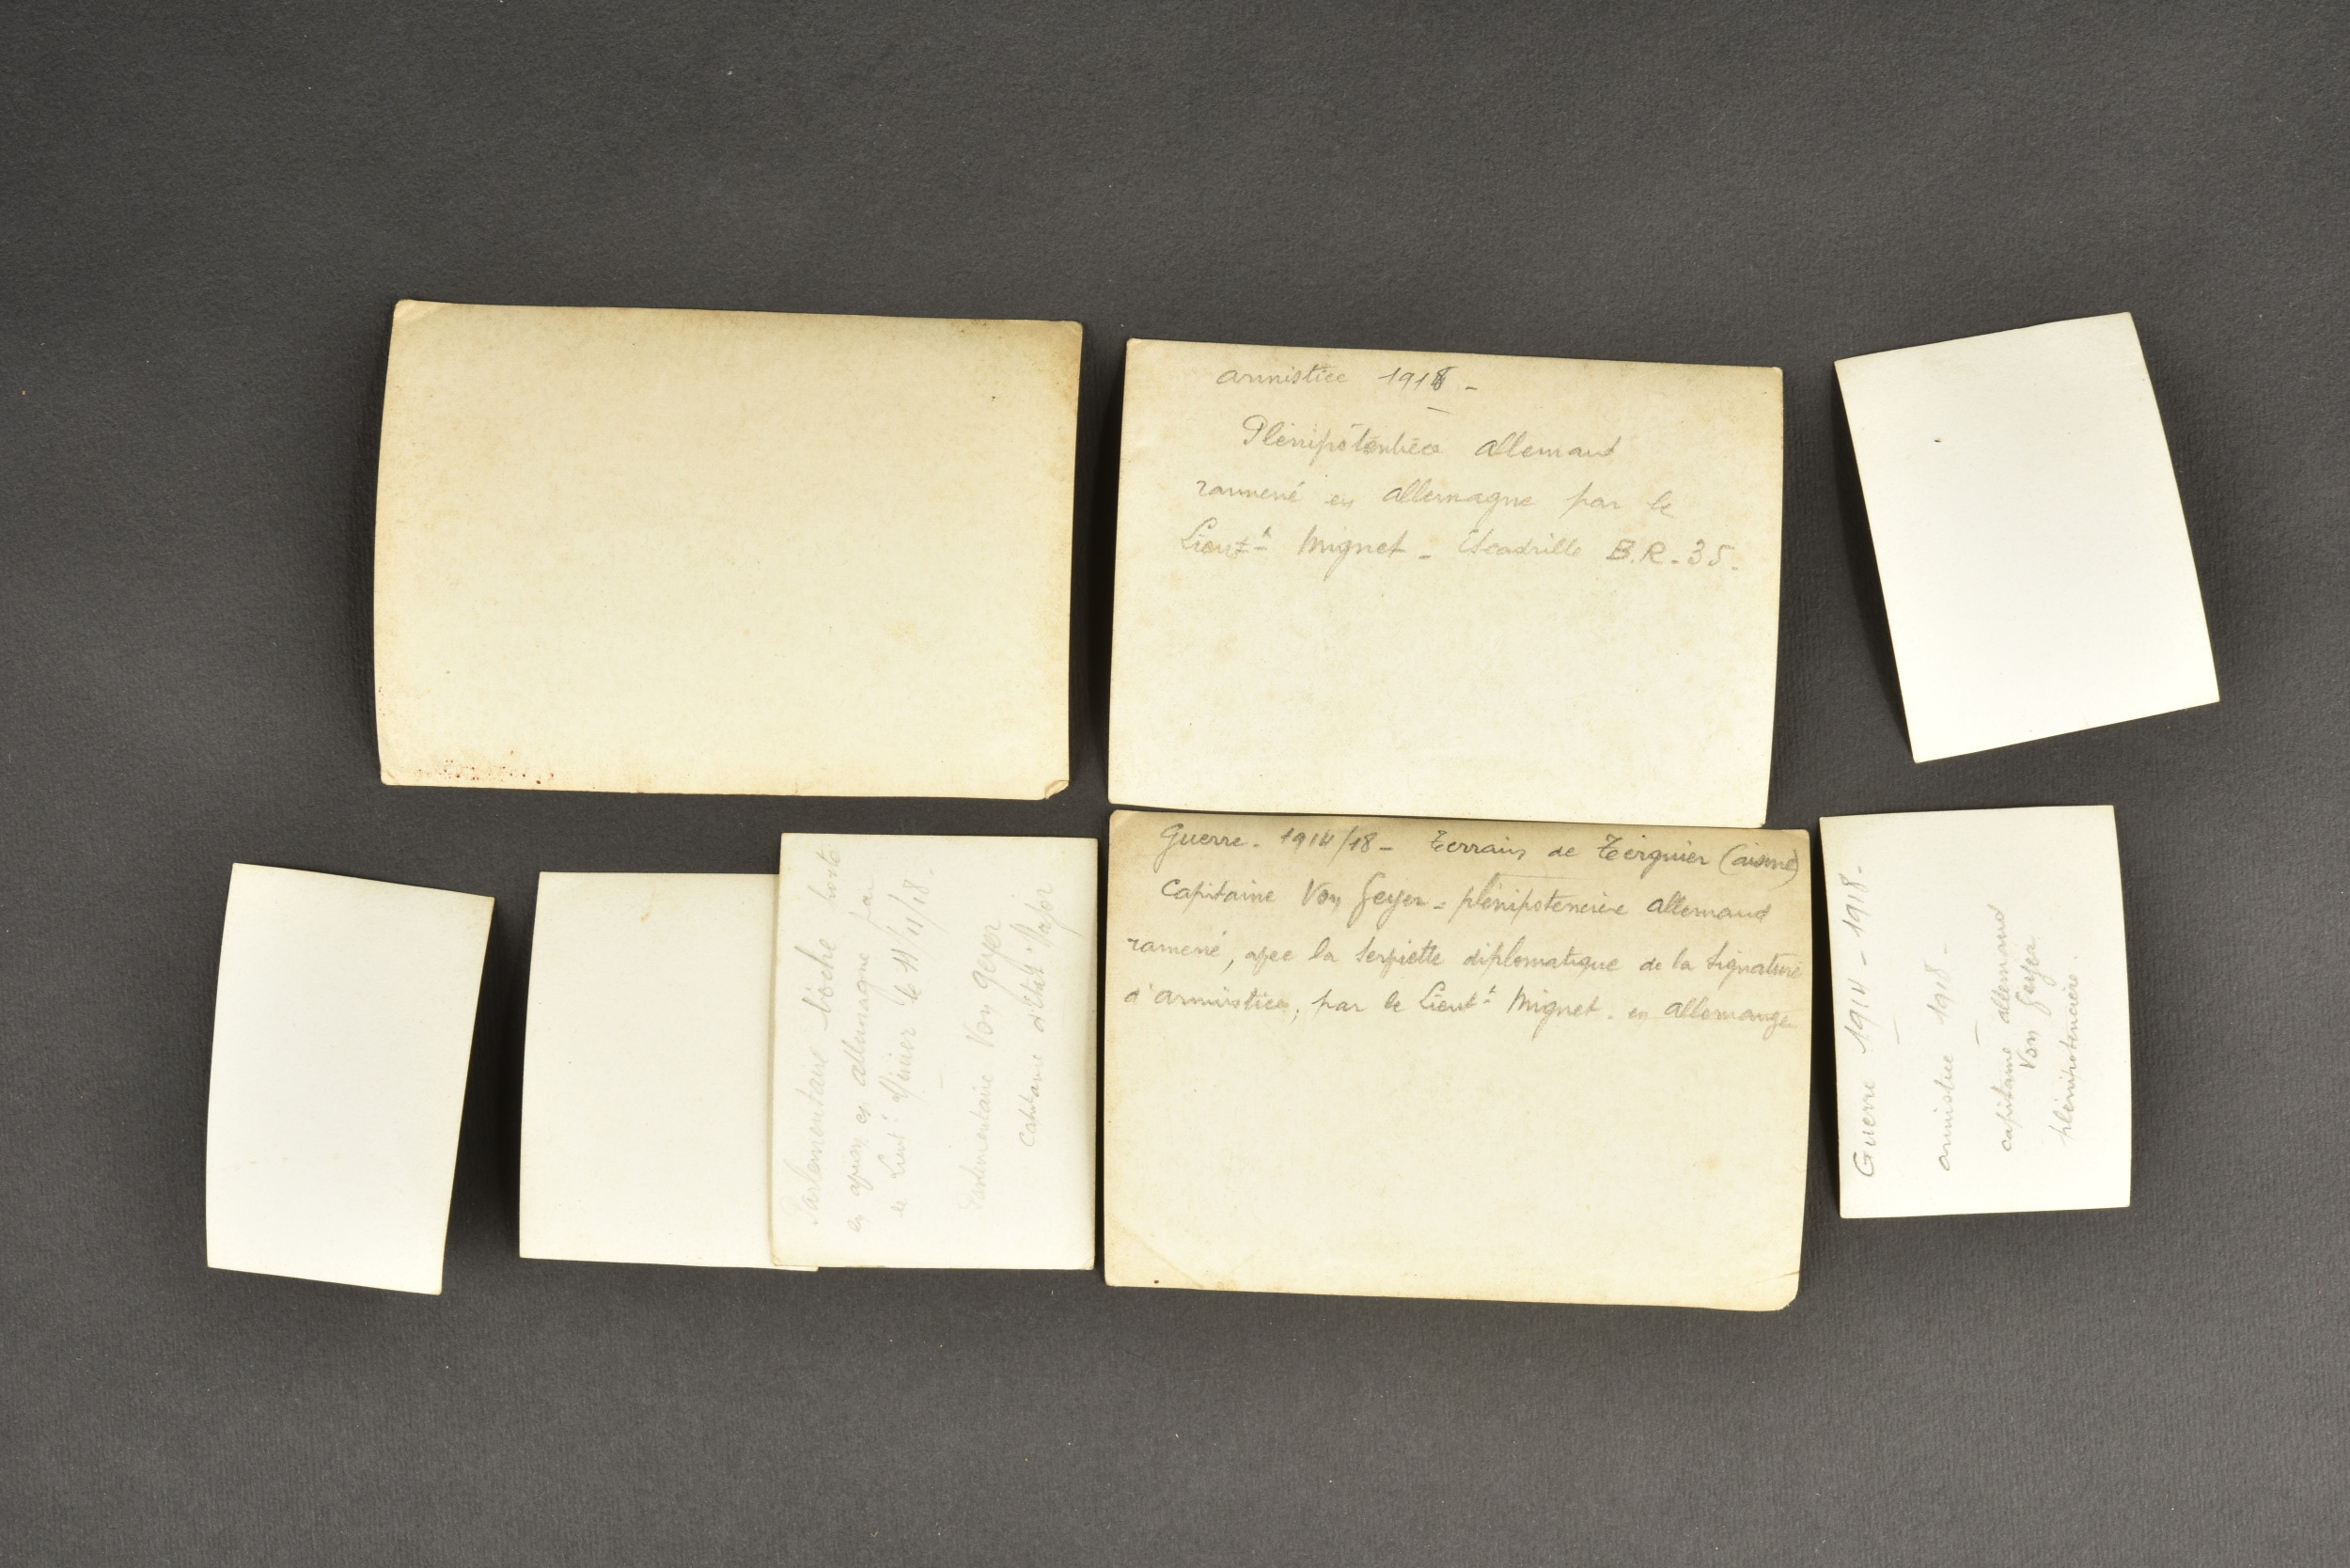 armistice 1918 -
Plénipôtentiéce allemand
rammené en allemagne par le
Lieut-t Mignet - Escadrille B.R. - 35 -
Guerre - 1914/18 - Terrain de Tergnier (aisne)
Capitaine Von Geyer = plénipotenciére allemand
ramené, avec la Serviette diplomatique de la Signature
d'armistice, par le Lieut-t Mignet - en allemange
Parlementaire boche
en avion en allemagne par
le Lieut-t le 11/11/18 -
Parlementaire Von Geyer
Capitaine d'Etat-Major
Guerre 1914 - 1918 -
armistice 1918 -
capitaine allemand
Von Geyer
plénipotenciére.